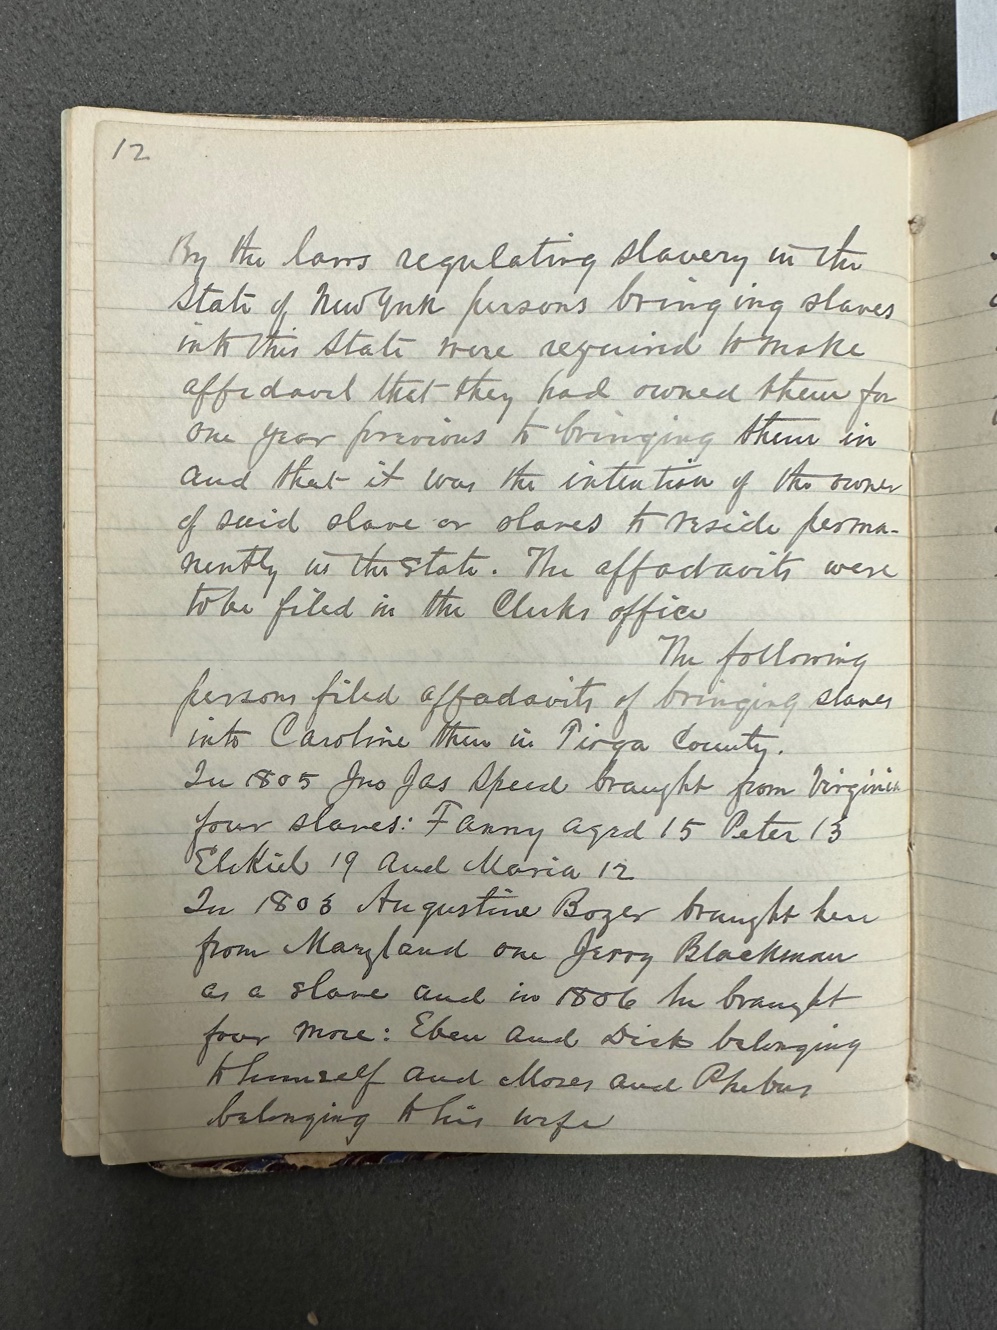 12
By the laws regulating slavery in the
State of New York persons bringing slaves
into this State were required to make
affidavit that they had owned them for
one year previous to bringing them in
and that it was the intention of the owner
of said slave or slaves to reside perma-
nently in the State. The affadavits were
to be filed in the Clerks office
The following
persons filed affadavits of bringing slaves
into Caroline then in Tioga County.
In 1805 Jno Jas Speed braught from Virginia
four slaves: Fanny aged 15 Peter 13
Ezekiel 19 and Maria 12
In 1803 Augustine Bozer braught here
from Maryland one Jerry Blackman
as a slave and in 1806 he braught
four more: Eben and Dick belonging
to himself and Moses and Phebus
belonging to his wife